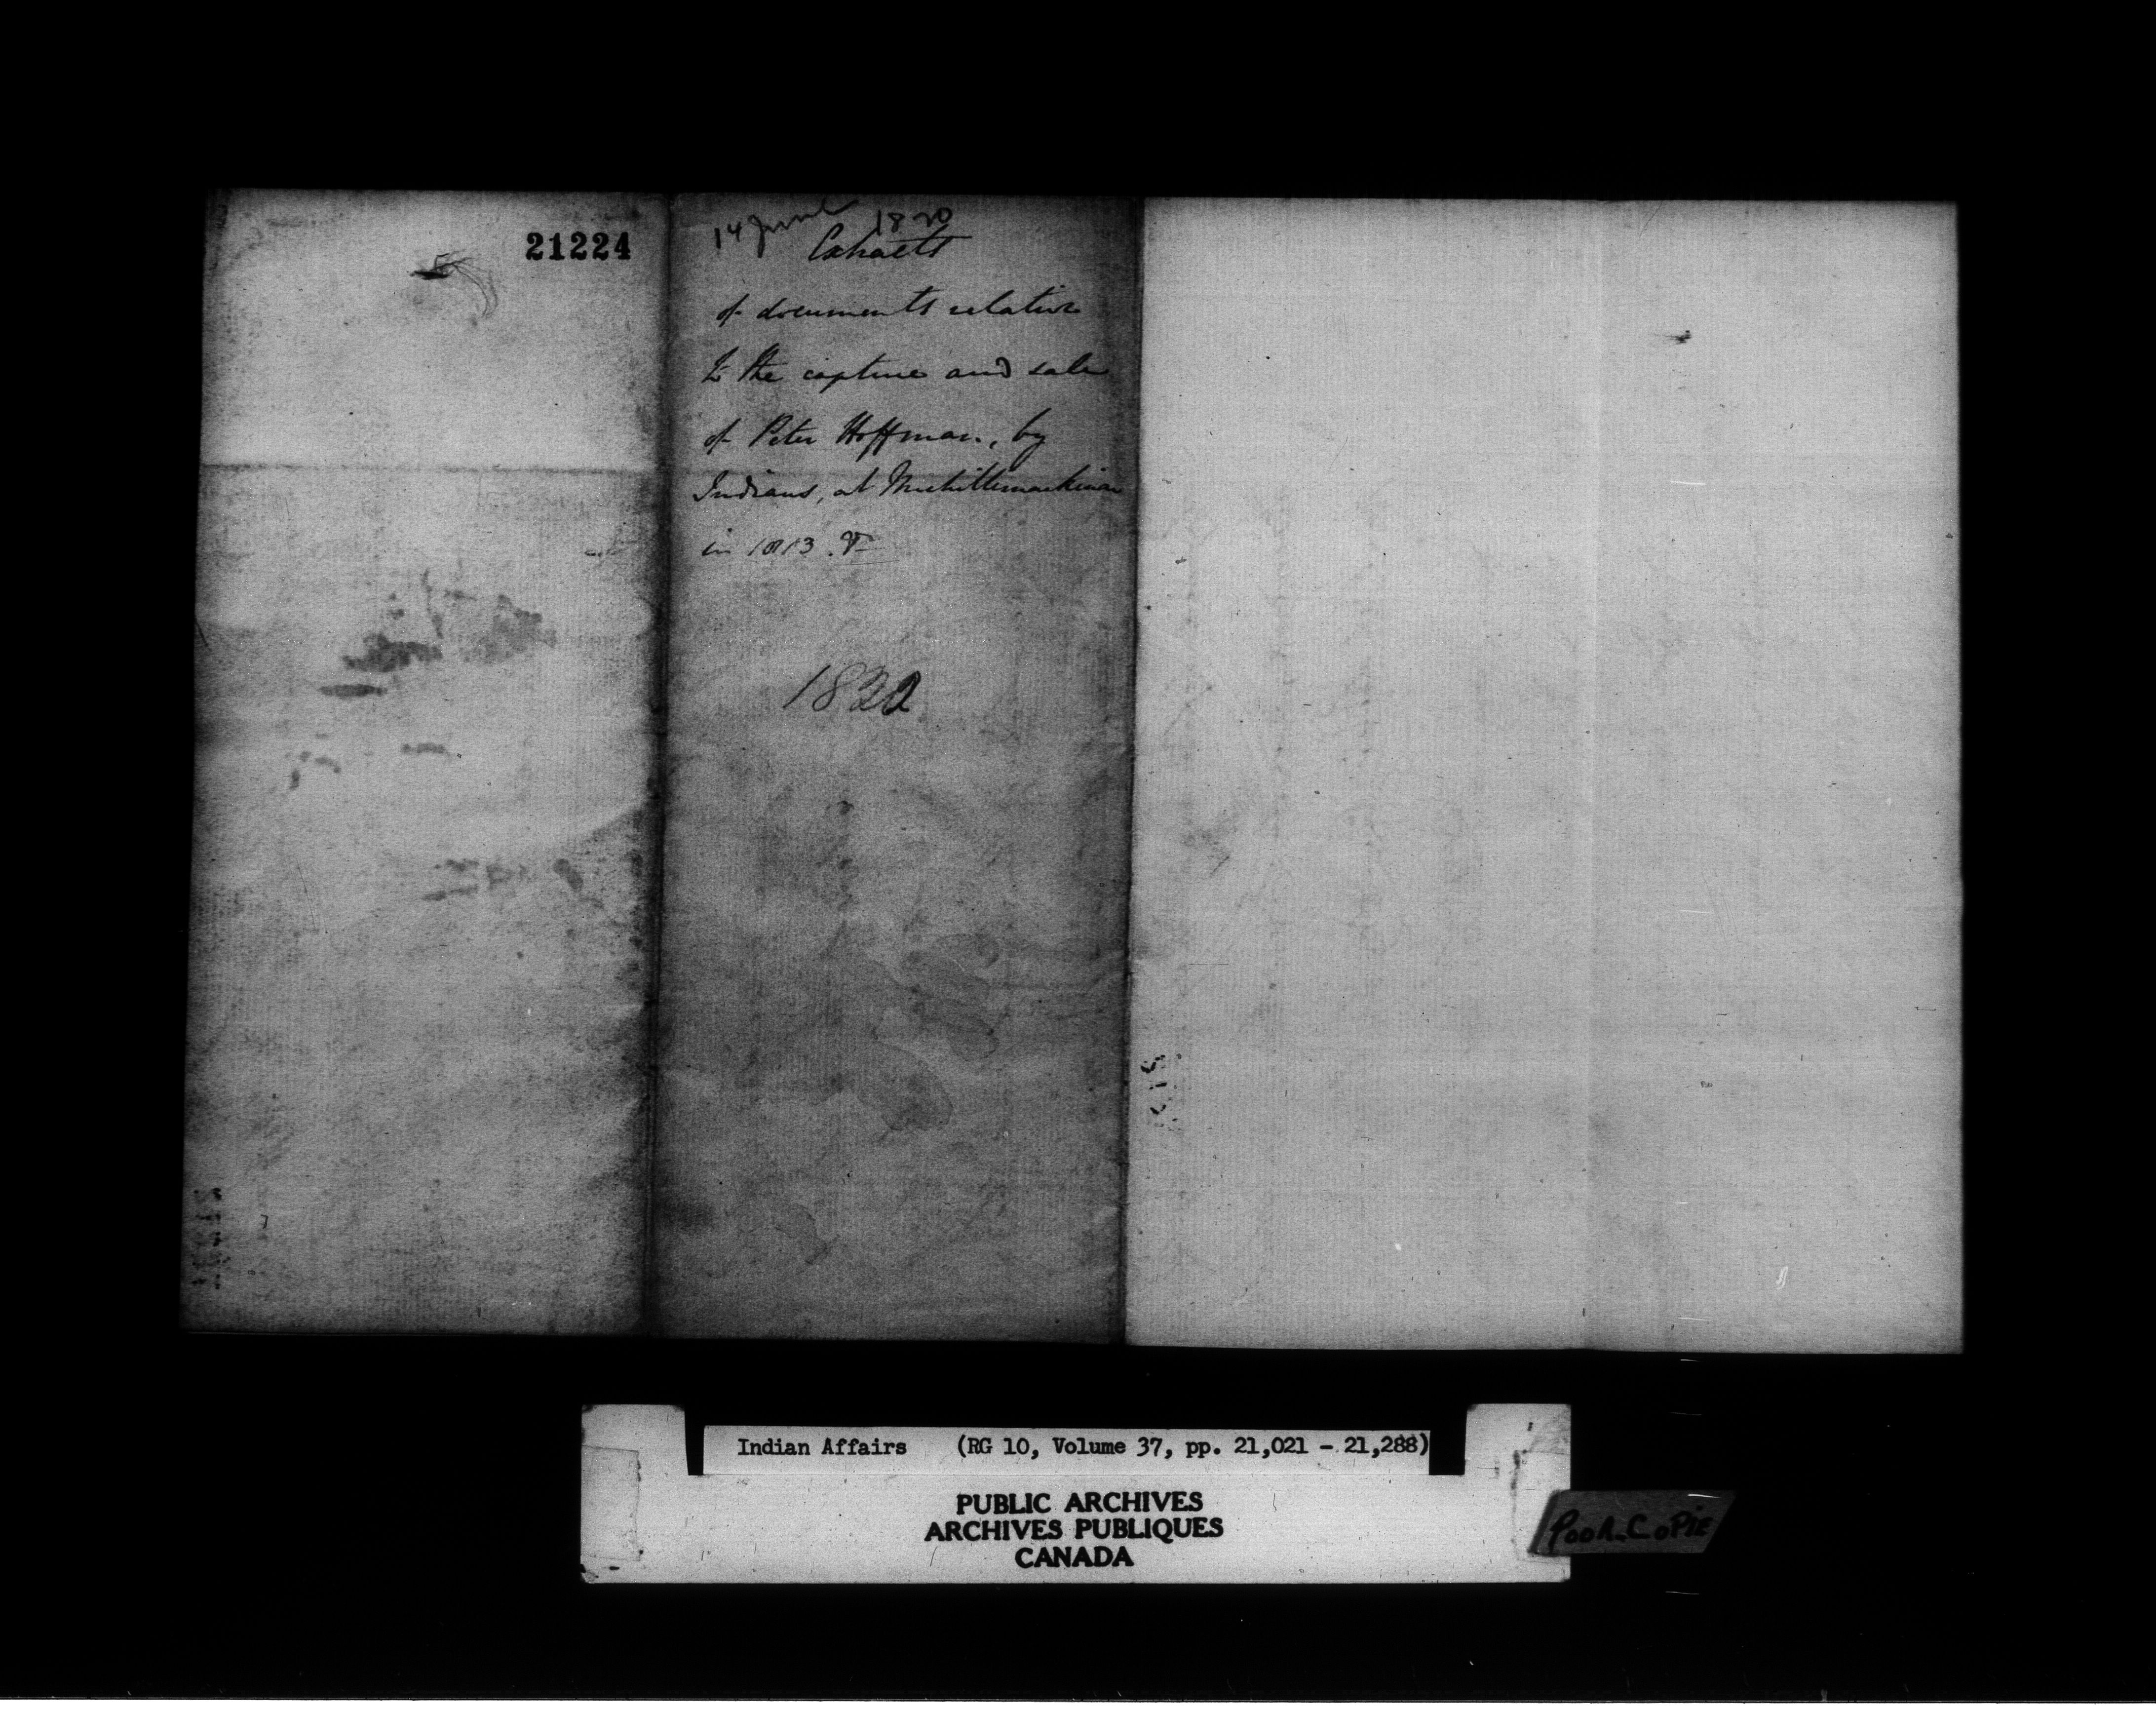 21224
14 June 1820
Extracts
of documents relative
to the capture and sale
of Peter Hoffman, by
Indians, at Michillimackinac
in 1813.
Indian Affairs (RG 10, Volume 37, pp. 21,021 - 21,288)
PUBLIC ARCHIVES
ARCHIVES PUBLIQUES
CANADA
Poor Copie